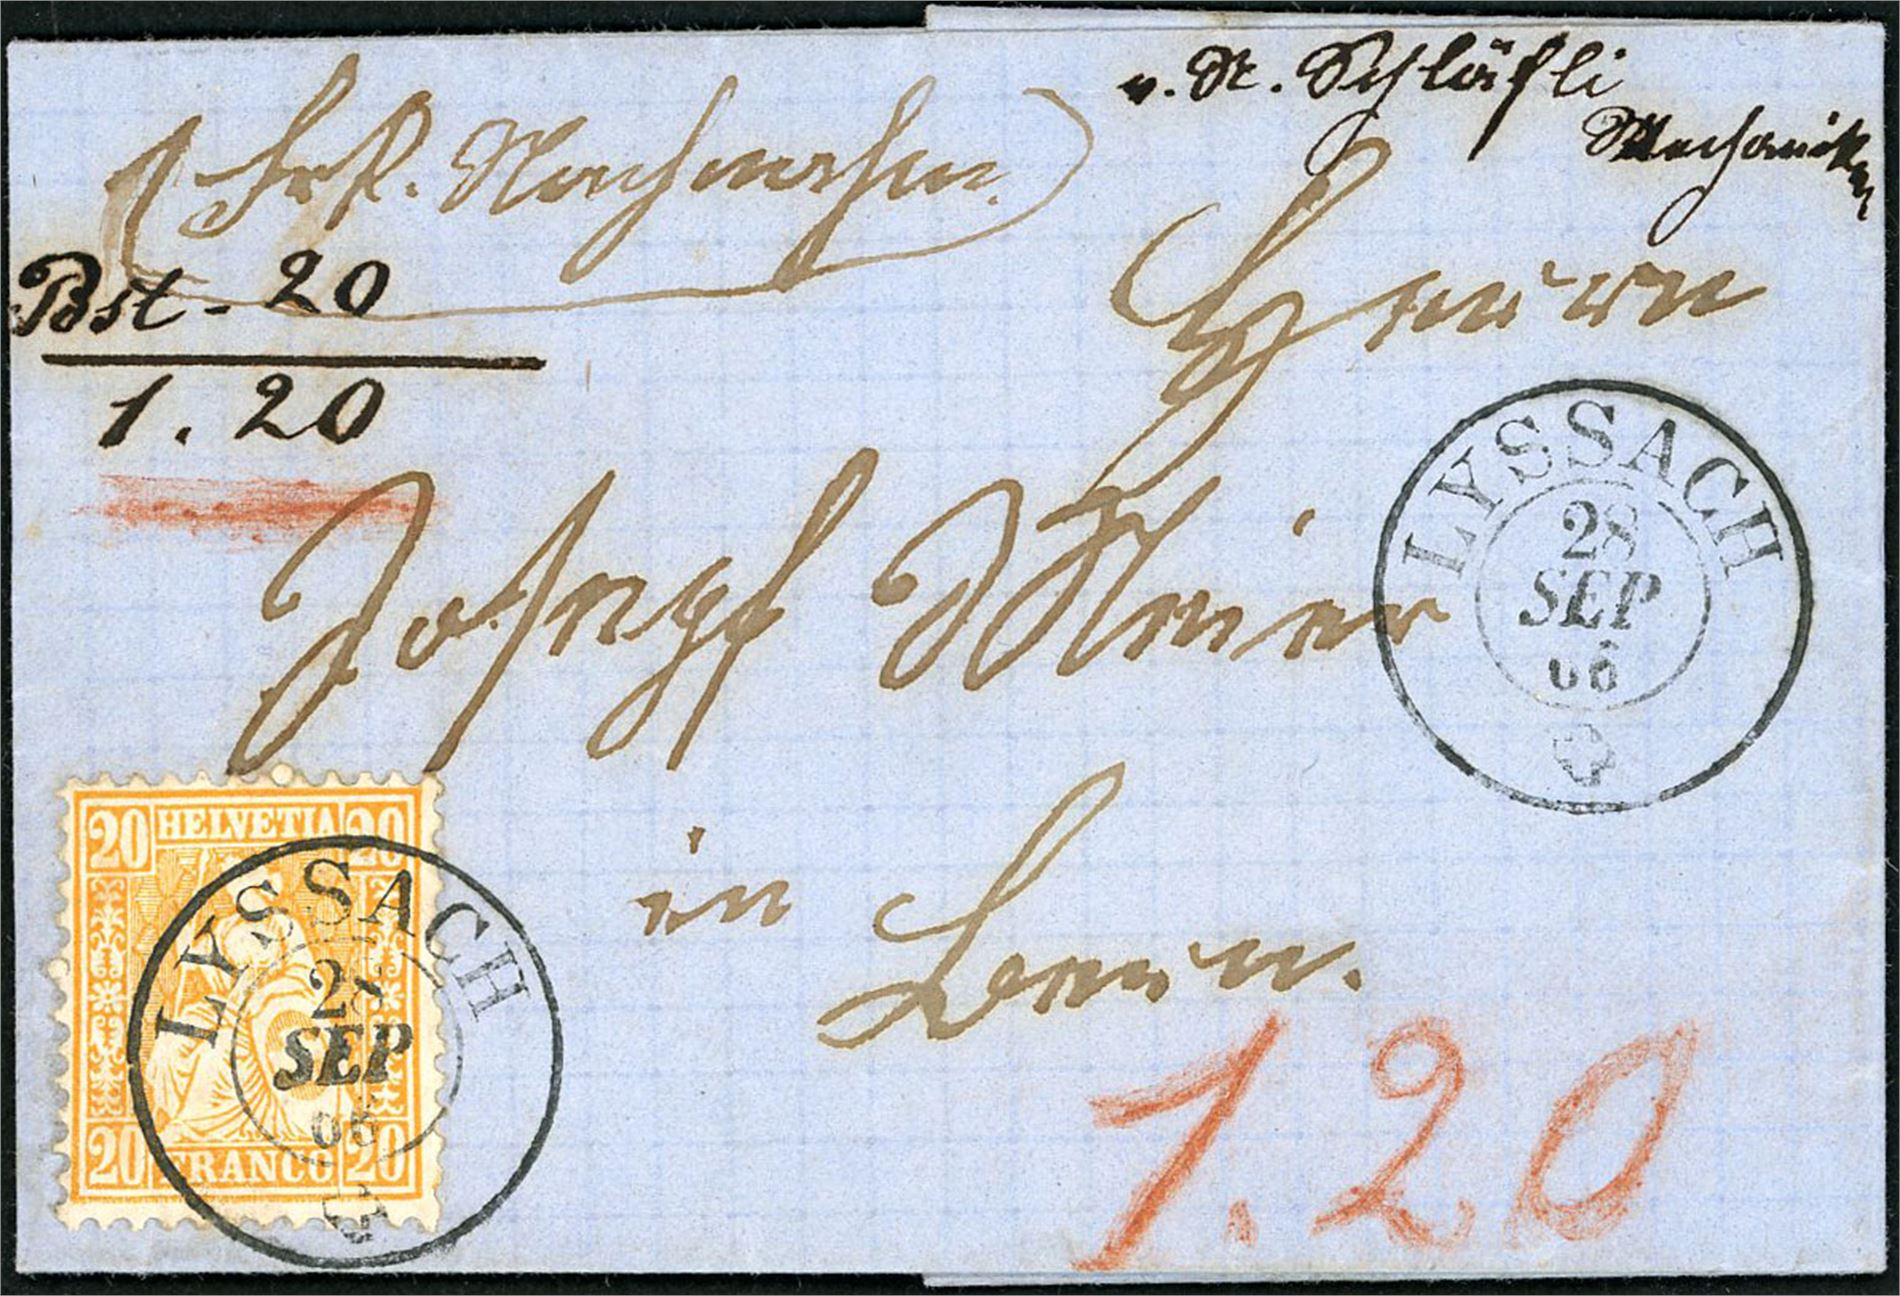 v. N. Schläfli
Mechaniker
Frk. Nachnahme.
Bst. 20
1.20
Herrn
Joseph Meier
in
LYSSACH
28
SEP
66
20 HELVETIA 20
20 FRANCO 20
LYSSACH
28
SEP
66
1.20